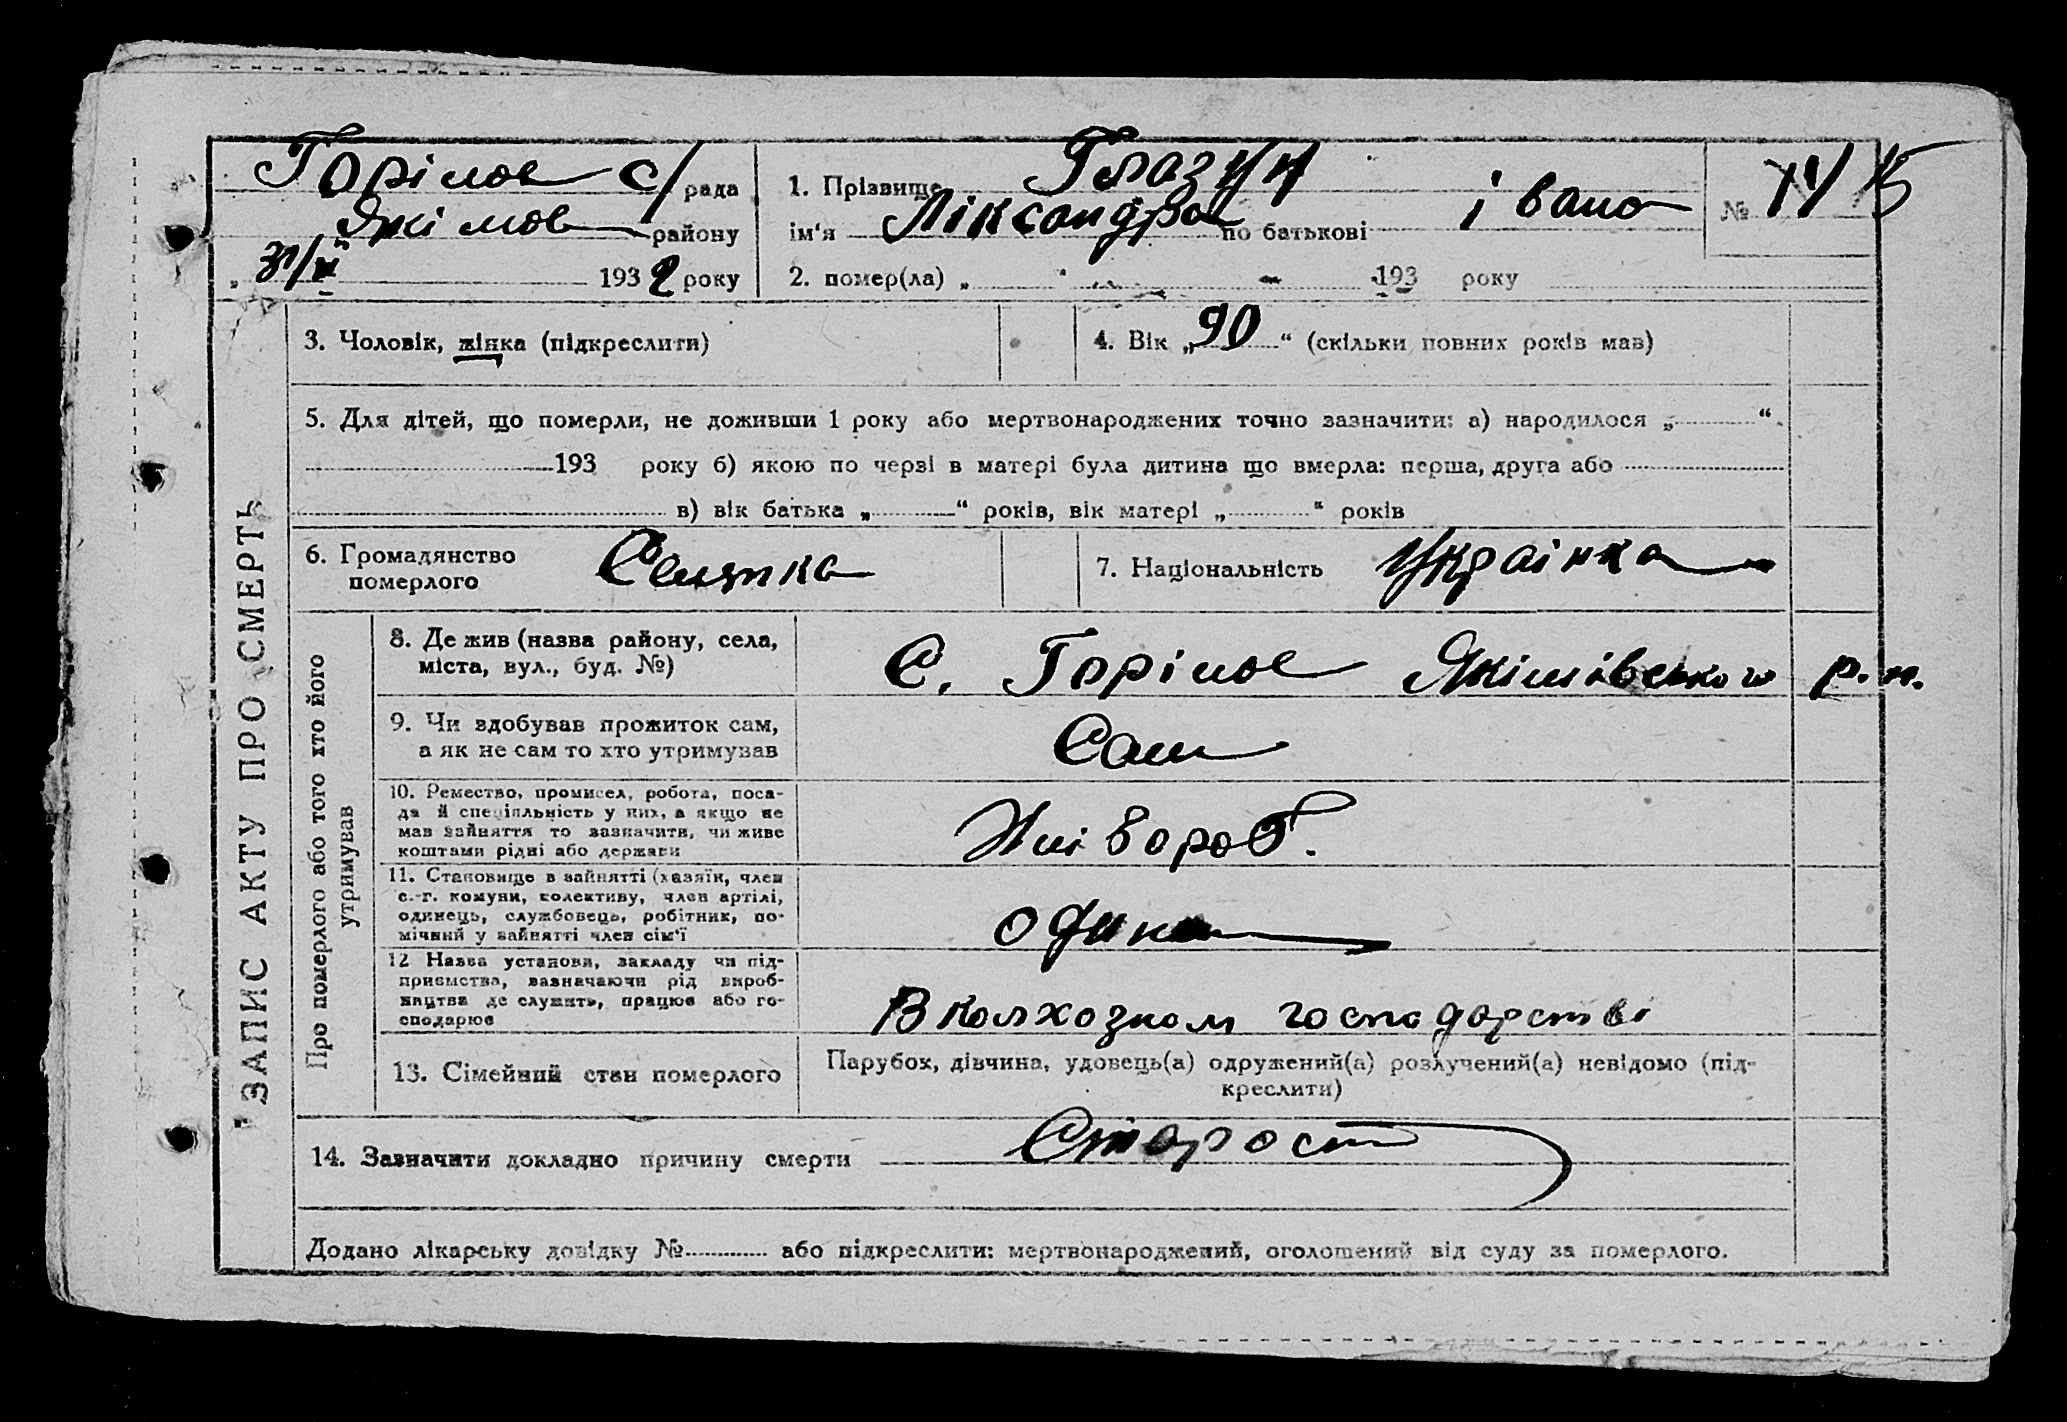 Горілов с/рада
Якімов району
" 31/V 1932 року
1. Прізвище Глазун
ім'я Ліксандра по батькові івано
№ 14 15
2. помер(ла) „ 193 року
3. Чоловік, жінка (підкреслити)
4. Вік „90“ (скільки повних років мав)
5. Для дітей, що померли, не доживши 1 року або мертвонароджених точно зазначити: а) народилося „ “
193 року б) якою по черзі в матері була дитина що вмерла: перша, друга або
в) вік батька „ “ років, вік матері „ “ років
6. Громадянство
померлого
Селянка
7. Національність Українка
ЗАПИС АКТУ ПРО СМЕРТЬ
Про померлого або того хто його
утримував
8. Де жив (назва району, села,
міста, вул., буд. №)
С. Горілов Якімівського р.н.
9. Чи здобував прожиток сам,
а як не сам то хто утримував
Сам
10. Ремество, промисел, робота, поса-
да й спеціяльність у них, а якщо не
мав зайняття то зазначити, чи живе
коштами рідні або держави
Хлібороб.
11. Становище в зайнятті (хазяїн, член
с.-г. комуни, колективу, член артілі,
одинець, службовець, робітник, по-
мічний у зайнятті член сім'ї
один
12 Назва установи, закладу чи під-
приємства, зазначаючи рід вироб-
ництва де служить, працює або го-
сподарює
В колхозном господарстві
13. Сімейний стан померлого
Парубок, дівчина, удовець(а) одружений(а) розлучений(а) невідомо (під-
креслити)
14. Зазначити докладно причину смерти Старост
Додано лікарську довідку № або підкреслити: мертвонароджений, оголошений від суду за померлого.